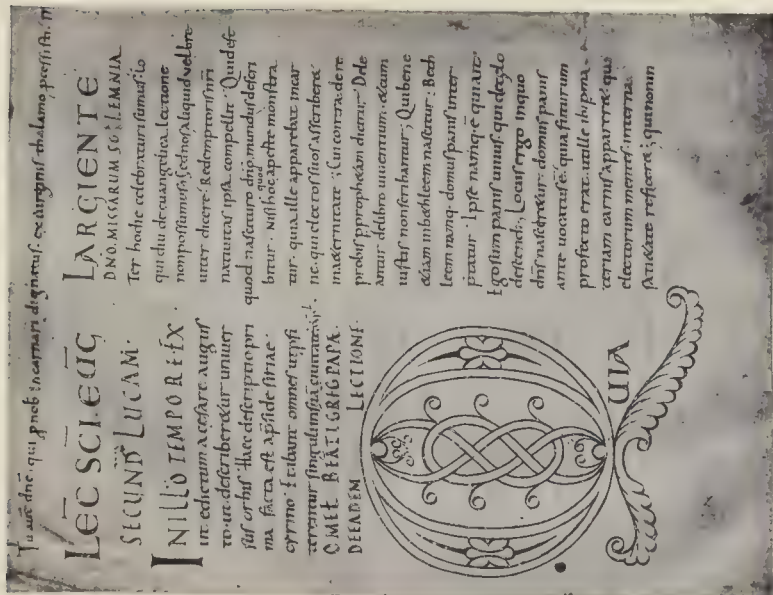 Tu aut dñe. qui p nob incarnari dignatus. ex uirginis thalamo pcessisti. m
LEC SCI. EUG
SECUND LUCAM.
IN ILLO TEMPORE. EX
iit edictum a cesare augus
to. ut describeretur uniuer
sus orbis. Haec descriptio pri
ma facta est apside siriae
cyrino. Et ibant omnes ut pfi
terentur singuli in suā ciuitatē.
OMEL BEATI GREG PAPAE.
DE EADEM LECTIONE.
QUIA
LARGIENTE
DNO. MISSARUM SOLLEMNIA
Ter hodie celebraturi sumus. lo
qui diu de euangelica lectione
non possumus. Sed nos aliquid uel bre
uiter dicere. Redemptoris nr̄i
natiuitas ipsa compellit. Quid est
quod nascituro dn̄o mundus descri
bitur. Nisi hoc aperte monstra
quod
tur. quia ille apparebat in car
ne. qui electos suos ascriberet
in aeternitate; Cui contra de re
probis p prophetam dicitur; Dele
antur de libro uiuentium. et cum
iustis non scribantur; Qui bene
etiam in bethleem nascitur. Beth
leem namq. domus panis inter
pretatur. Ipse namq. ē qui ait.
Ego sum panis uiuus. qui de celo
descendi; Locus ergo in quo
dn̄s nasceretur. domus panis
ante uocatus ē. quia futurum
profecto erat. ut ille ibi p ma
teriam carnis appareret. qui
electorum mentes interna
satietate reficeret; qui non in